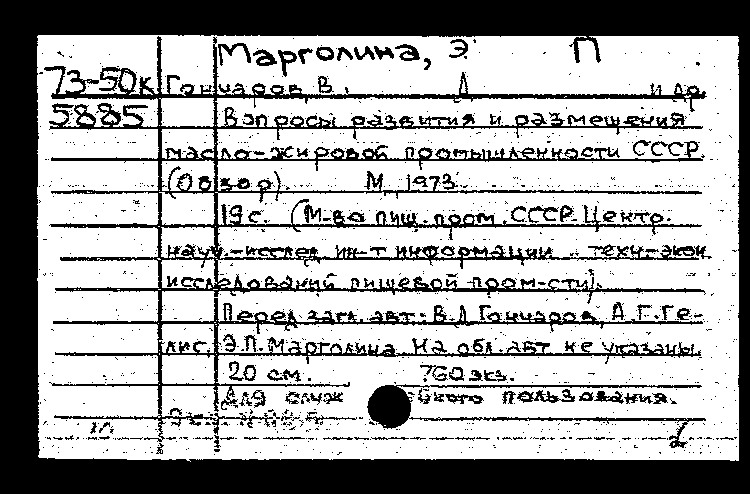 Марголина, Э. П
73-50к Гончаров, В. Д и др.
5885 Вопросы развития и размещения
масло-жировой промышленности СССР.
(Обзор). М., 1973.
19 с. (М-во пищ. пром. СССР. Центр.
науч.-исслед. ин-т информации и техн-экон.
исследований пищевой пром-сти).
Перед загл. авт.: В.Д. Гончаров, А.Г. Ге-
лис, Э.П. Марголина. На обл. авт. не указаны.
20 см. 760 экз.
Для служ ского пользования.